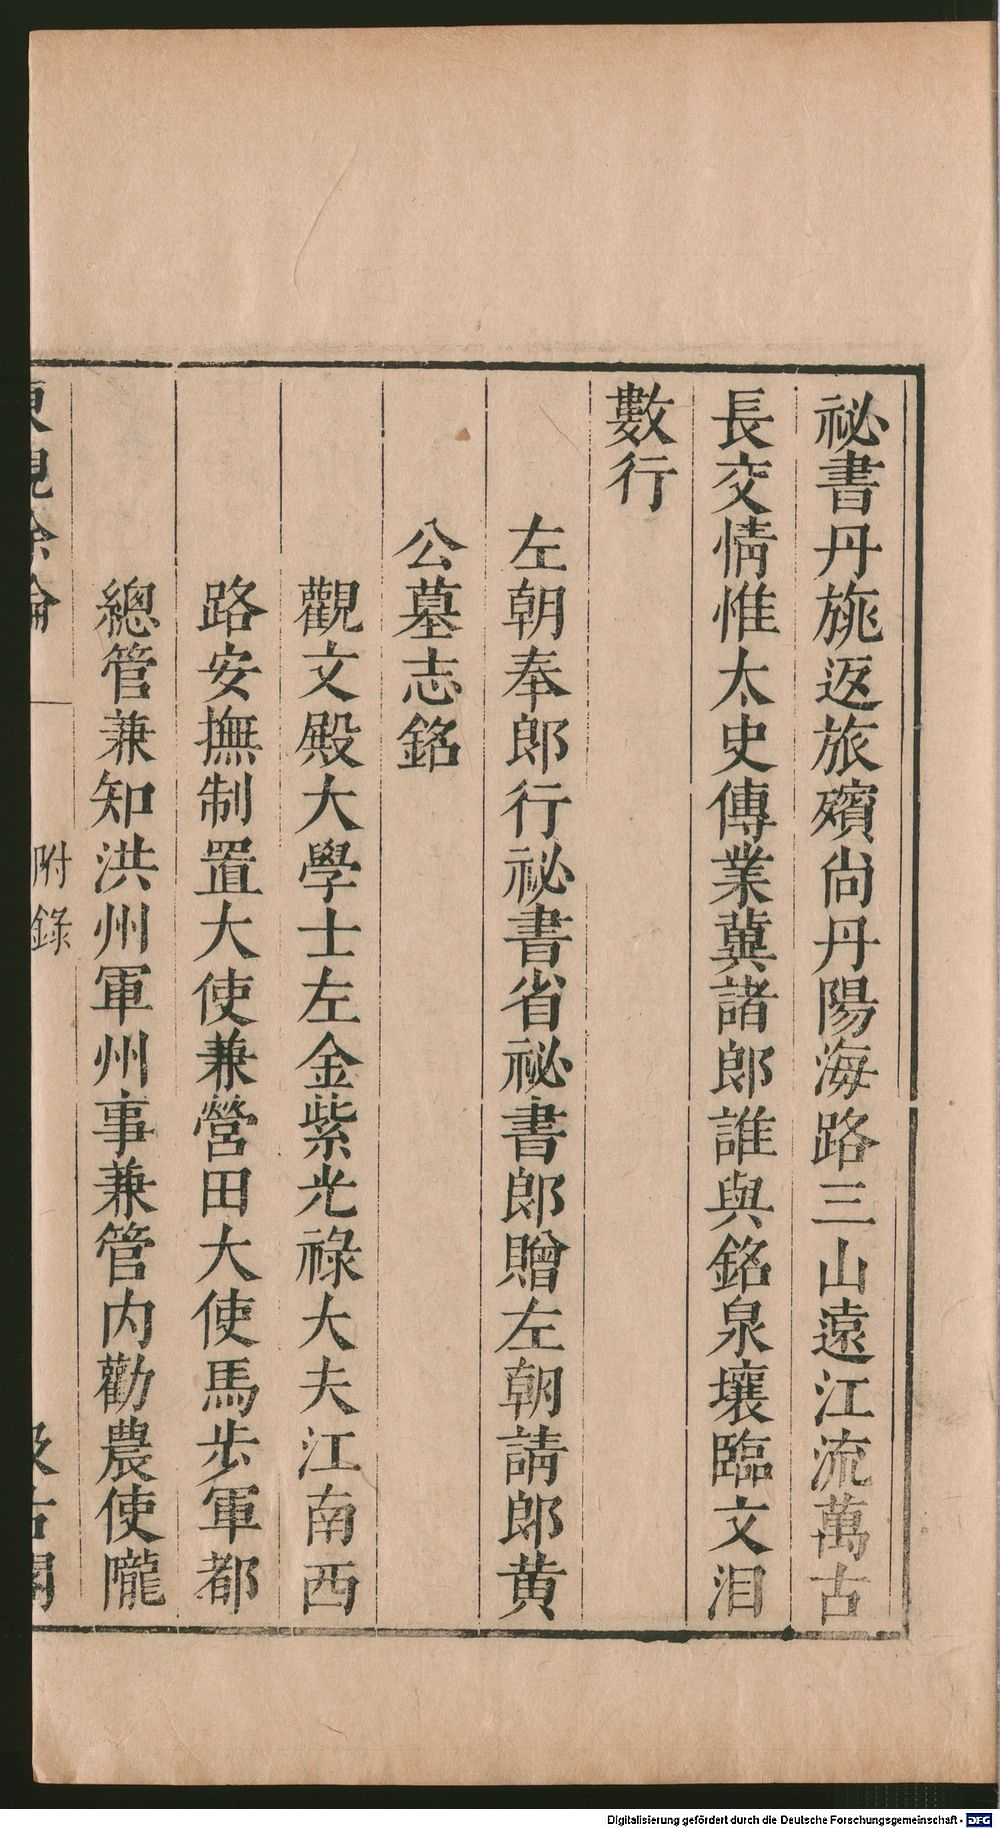 祕書丹旐返旅殯尙丹陽海路三山遠江流萬古
長交情惟太史傳業冀諸郎誰與銘泉壤臨文淚
數行
左朝奉郎行祕書省祕書郎贈左朝請郎黃
公墓志銘
觀文殿大學士左金紫光祿大夫江南西
路安撫制置大使兼營田大使馬步軍都
總管兼知洪州軍州事兼管内勸農使隴
東觀餘論
附錄
汲古閣
Digitalisierung gefördert durch die Deutsche Forschungsgemeinschaft - DFG